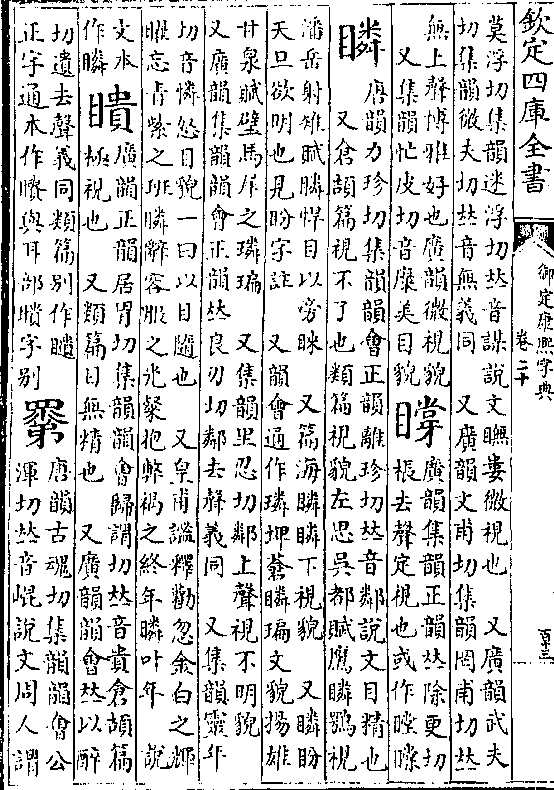 欽定四庫全書
御定康熙字典
卷二十
莫浮切集韻迷浮切𠀤音謀說文瞴婁微視也 又廣韻武夫
切集韻微夫切𠀤音無義同 又廣韻文甫切集韻罔甫切𠀤
無上聲博雅好也廣韻微視貌
又集韻忙皮切音糜美目貌
瞠
廣韻集韻正韻𠀤除更切
棖去聲定視也或作瞠瞸
瞵
唐韻力珍切集韻韻會正韻離珍切𠀤音鄰說文目精也
又倉頡篇視不了也類篇視貌左思吳都賦鷹瞵鶚視
潘岳射雉賦瞵悍目以旁睞 又篇海瞵瞵下視貌 又瞵盼
天旦欲明也見盼字註 又韻會通作璘埤蒼瞵㻞文貌揚雄
甘泉賦壁馬犀之瞵㻞 又集韻里忍切鄰上聲視不明貌
又廣韻集韻韻會正韻𠀤良刃切鄰去聲義同 又集韻靈年
切音憐怒目貌一曰以目隨也 又皇甫謐釋勸忽金白之輝
曜忘青紫之班瞵辭容服之光粲抱弊褐之終年瞵叶年 說
文本
作瞵
瞶
廣韻正韻居胃切集韻韻會歸謂切𠀤音貴倉頡篇
極視也 又類篇目無精也 又廣韻韻會𠀤以醉
切遺去聲義同類篇別作䁤
正字通本作瞶與耳部聵字別
瞏
唐韻古魂切集韻韻會公
渾切𠀤音崐說文周人謂